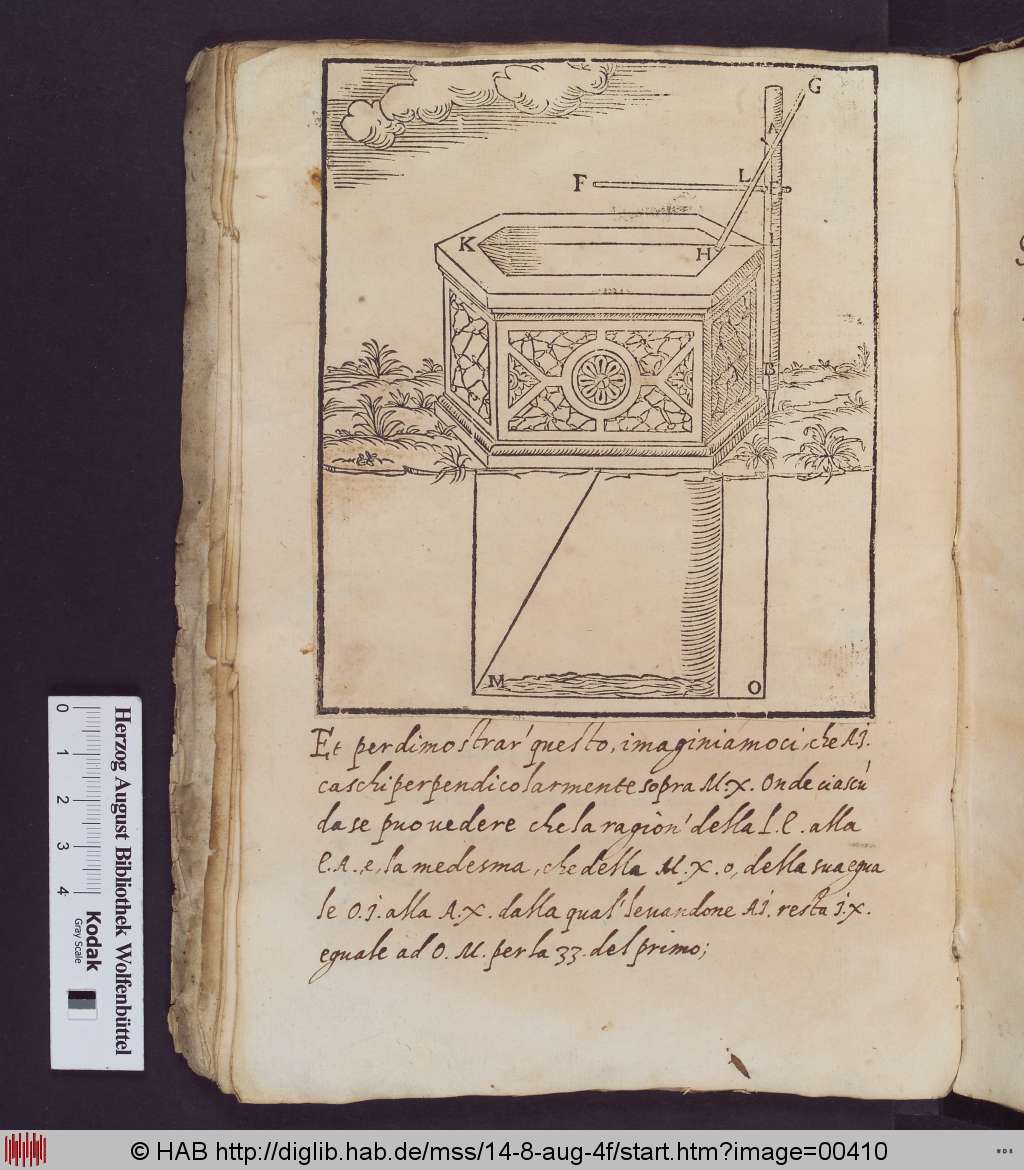 G
A
L
F
E
I
K
H
B
M
O
Et per dimostrar' questo, imaginiamoci, che A I.
caschi perpendicolarmente sopra M. X. Onde ciascū
da se puo vedere che la ragion' della L. E. alla
E. A. e, la medesma, che della M. X. o, della sua egua
le O. I. alla A. X. dalla qual' levandone A I. resta I. X.
eguale ad O. M. per la 33. del primo;
0
1
2
3
4
Kodak
Gray Scale
Herzog August Bibliothek Wolfenbüttel
© HAB http://diglib.hab.de/mss/14-8-aug-4f/start.htm?image=00410